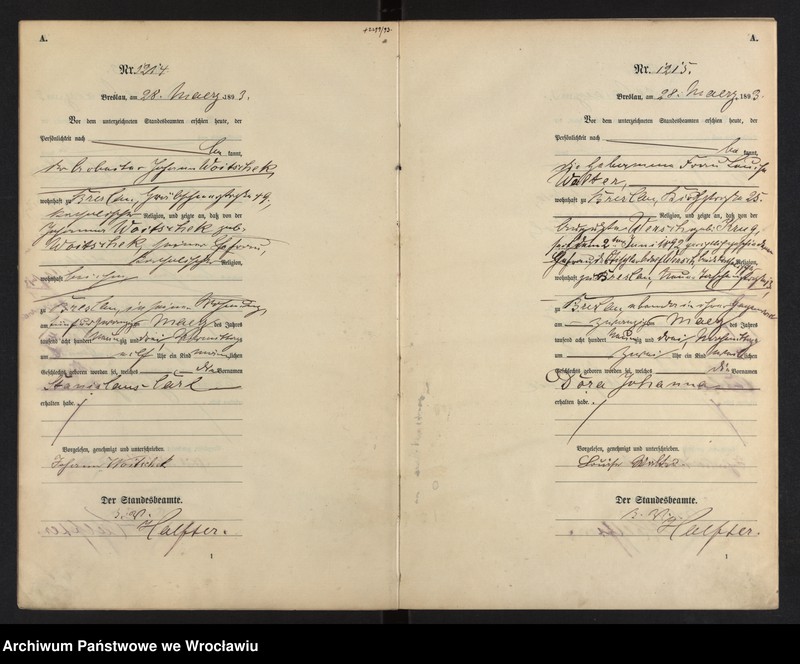 A.
Nr. 1214.
Breslau, am 28. Maerz 1893.
Vor dem unterzeichneten Standesbeamten erschien heute, der
Persönlichkeit nach
be kannt,
der Arbeiter Johann Woitschek,
wohnhaft zu Breslau, Gräbschnerstraße 49,
katholischer Religion, und zeigte an, daß von der
Johanna Woitschek geb.
Woitschek, seiner Ehefrau,
katholischer Religion,
wohnhaft bei ihm
zu Breslau, in seiner Wohnung
am fünf und zwanzigsten Maerz des Jahres
tausend acht hundert neunzig und drei, Vormittags
um elf Uhr ein Kind männlichen
Geschlechts geboren worden sei, welches die Vornamen
Stanislaus Carl
erhalten habe.
Vorgelesen, genehmigt und unterschrieben.
Johann Woitschek
Der Standesbeamte.
B. V.
Halfter.
1
A.
Nr. 1215.
Breslau, am 28. Maerz 1893.
Vor dem unterzeichneten Standesbeamten erschien heute, der
Persönlichkeit nach
be kannt,
die Hebamme Frau Louise
wohnhaft zu Breslau, 25.
Religion, und zeigte an, daß von der
geb. Krug,
seit dem 2ten Juni 1892
Ehefrau des
Religion,
wohnhaft zu Breslau, Neue
zu Breslau
am zwanzigsten Maerz des Jahres
tausend acht hundert neunzig und drei, Nachmittags
um zwei Uhr ein Kind weiblichen
Geschlechts geboren worden sei, welches die Vornamen
Dora Johanna
erhalten habe.
Vorgelesen, genehmigt und unterschrieben.
Louise
Der Standesbeamte.
B. V.
Halfter.
1
Archiwum Państwowe we Wrocławiu